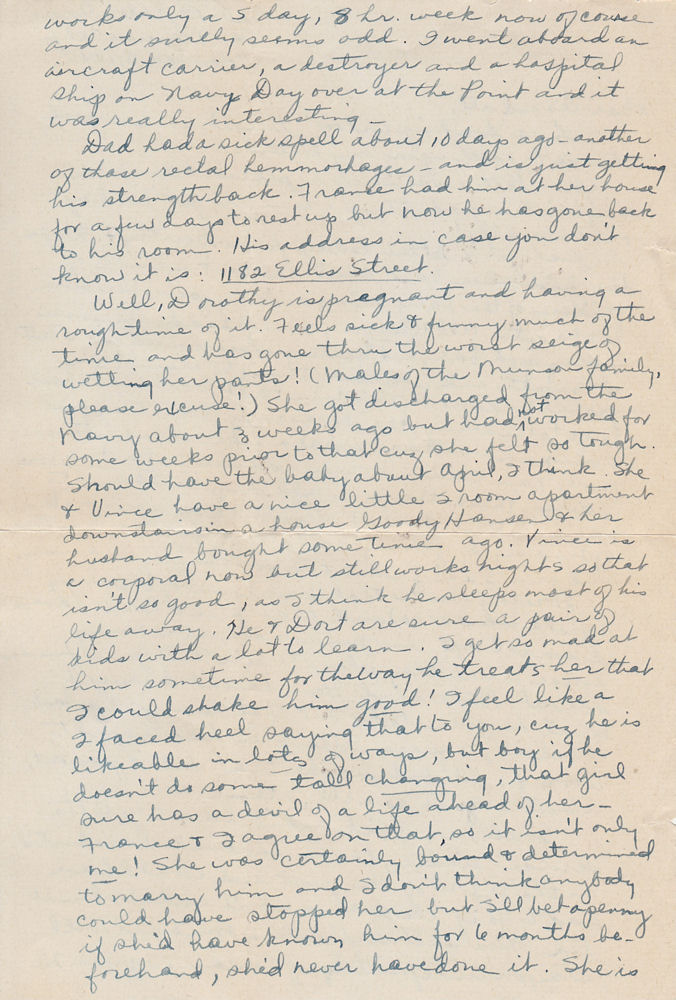 works only a 5 day, 8 hr. week now of course
and it surely seems odd. I went aboard an
aircraft carrier, a destroyer and a hospital
ship on Navy Day over at the Point and it
was really interesting -
Dad had a sick spell about 10 days ago - another
of those rectal hemmorhages - and is just getting
his strength back. France had him at her house
for a few days to rest up but now he has gone back
to his room. His address in case you don't
know it is: 1182 Ellis Street.
Well, Dorothy is pregnant and having a
rough time of it. Feels sick & funny much of the
time and has gone thru the worst seige of
wetting her pants! (Males of the Munson family,
please excuse!) She got discharged from the
Navy about 3 weeks ago but had not worked for
some weeks prior to that cuz she felt so tough.
Should have the baby about April, I think. She
& Vince have a nice little 2 room apartment
downstairs in a house Goody Hansen & her
husband bought some time ago. Vince is
a corporal now but still works nights so that
isn't so good, as I think he sleeps most of his
life away. He & Dort are sure a pair of
kids with a lot to learn. I get so mad at
him sometime for the way he treats her that
I could shake him good! I feel like a
2 faced heel saying that to you, cuz he is
likeable in lots of ways, but boy if he
doesn't do some tall changing, that girl
sure has a devil of a life ahead of her -
France & I agree on that, so it isn't only
me! She was certainly bound & determined
to marry him and I don't think anybody
could have stopped her but I'll bet a penny
if she'd have known him for 6 months be-
forehand, she'd never have done it. She is